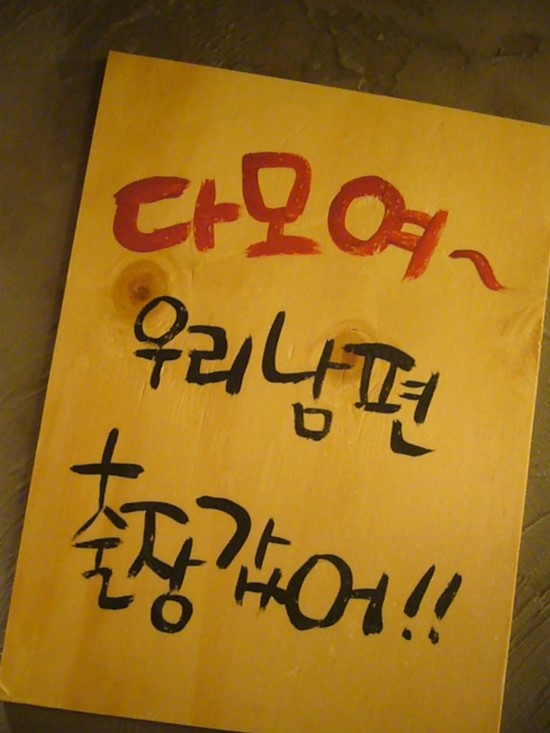 다모여~
우리남편
출장갔어!!